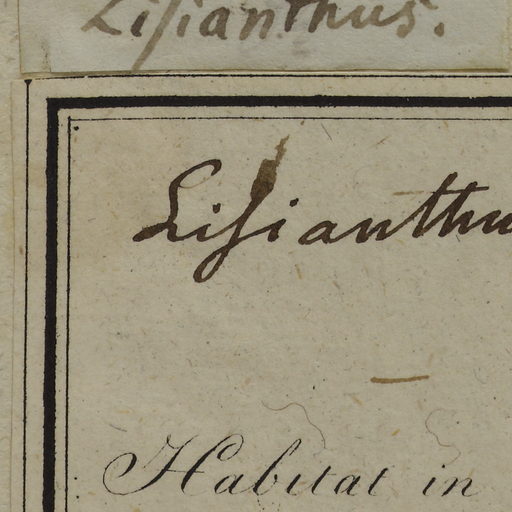 Lisianthus.
Lisianthu
Habitat in